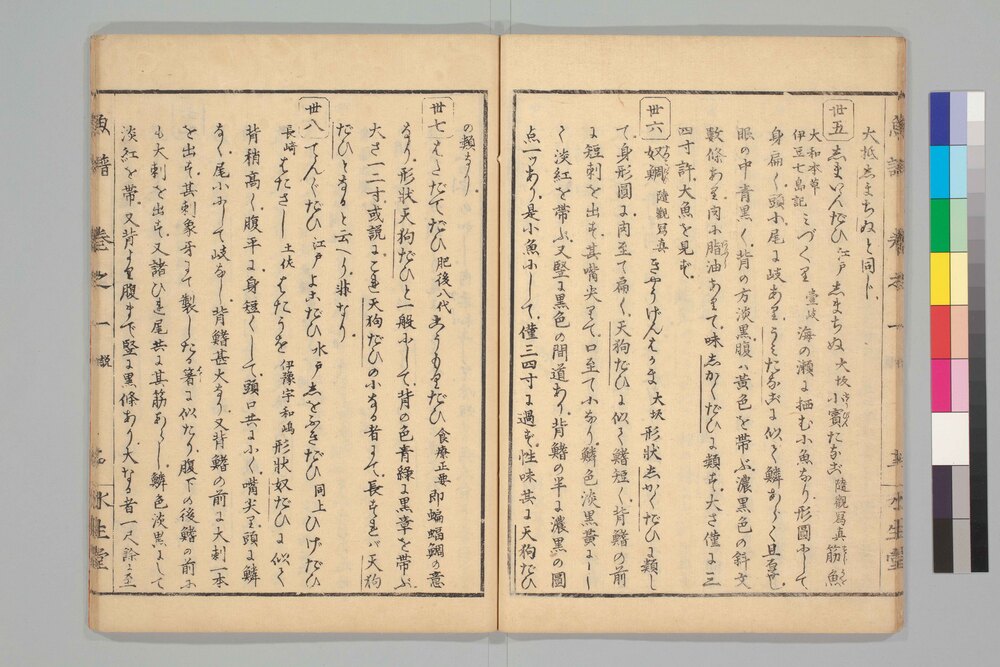 大抵志まちぬと同じ
卅五 志まいさぎ 江戸 志まちぬ 大坂 小賓たなご 隨觀寫真 筋魚
大和本草 伊豆七島記 みづくり 壹岐 海の瀬に栖む小魚なり形圓にして
身扁く頭小尾に岐ありうみたなごに似て鱗あらく且
眼の中青黒く背の方淡黒腹ハ黄色を帯ぶ濃黒色の斜文
數條あり肉小脂油ありて味志かくだひに類す大さ僅に三
四寸許大魚を見ず
卅六 奴鯛 隨觀寫真 きやうげんばかま 大坂 形状志かくだひに類し
て身形圓に肉至て扁く天狗だひに似て鰭短く背鰭の前
に短刺を出す其嘴尖りて口至て小なり鱗色淡黒黄にし
て淡紅を帯ぶ又竪に黒色の間道あり背鰭の半に濃黒の圓
点一ツあり是小魚にして僅三四寸に過ず性味共に天狗だひ
の類なり
卅七 はたたてだひ 肥後八代 かうもりだひ 食療正要 即蝙蝠鯛の意
なり形状天狗だひと一般にして背の色青緑に黒章を帯ぶ
大さ一二寸或説にこれ天狗だひの小なる者にて長ずれバ天狗
だひとなると云へり非なり
卅八 てんぐだひ 江戸 よこだひ 水戸 志をふきだひ 同上 ひげだひ
長崎 はたざし 土佐 はたうを 伊豫宇和嶋 形状奴だひに似て
背稍高く腹平に身短くして頭口共に小く嘴尖り頭に鱗
なく尾小にして岐なし背鰭甚大なり又背鰭の前に大刺一本
を出す其刺象牙にて製したる箸に似たり腹下の後鰭の前に
も大刺を出す又諸ひれ尾共に其筋あらし鱗色淡黒にして
淡紅を帯又背より腹まで下竪に黒條あり大なる者一尺餘に至
魚譜 巻之一 説 水生堂